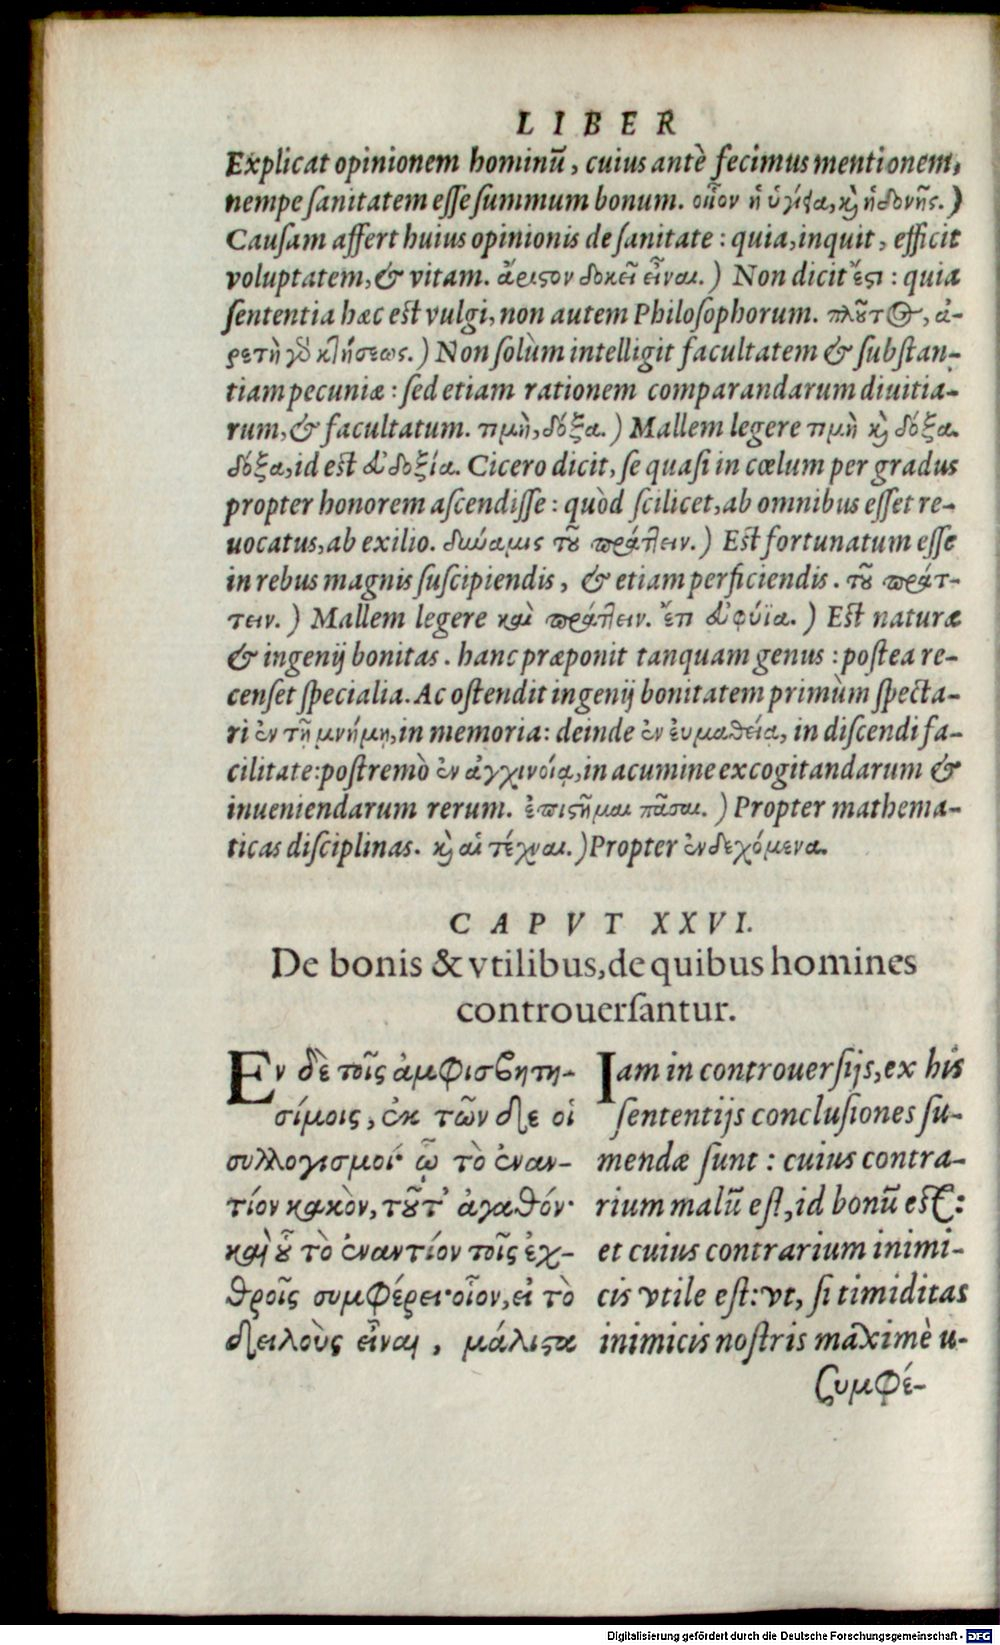 LIBER
Explicat opinionem hominū, cuius antè fecimus mentionem,
nempe ſanitatem eſſe ſummum bonum. οἷον ἡ ὑγίεια, κỳ ἡδονῆς.)
Cauſam affert huius opinionis de ſanitate : quia, inquit, efficit
voluptatem, & vitam. ἄριϛον δοκεῖ εἶναι.) Non dicit ἔϛι : quia
ſententia hæc eſt vulgi, non autem Philoſophorum. πλοῦτος, ἀ-
ρετὴ γὸ κτήσεως.) Non ſolùm intelligit facultatem & ſubſtan-
tiam pecuniæ : ſed etiam rationem comparandarum diuitia-
rum, & facultatum. τιμὴ, δόξα.) Mallem legere τιμὴ κỳ δόξα.
δόξα, id est εὐδοξία. Cicero dicit, ſe quaſi in cœlum per gradus
propter honorem aſcendiſſe : quòd ſcilicet, ab omnibus eſſet re-
uocatus, ab exilio. δύναμις τοῦ πράττειν.) Eſt fortunatum eſſe
in rebus magnis ſuſcipiendis, & etiam perficiendis. τοῦ πράτ-
τειν.) Mallem legere καὶ πράττειν. ἔτι εὐφυΐα.) Eſt naturæ
& ingenij bonitas. hanc præponit tanquam genus : poſtea re-
cenſet ſpecialia. Ac oſtendit ingenij bonitatem primùm ſpecta-
ri ἐν τῇ μνήμῃ, in memoria: deinde ἐν εὐμαθείᾳ, in diſcendi fa-
cilitate: poſtremò ἐν ἀγχινοίᾳ, in acumine excogitandarum &
inueniendarum rerum. ἐπιϛῆμαι πᾶσαι.) Propter mathema-
ticas diſciplinas. κỳ αἱ τέχναι.) Propter ἐνδεχόμενα.
CAPVT XXVI.
De bonis & vtilibus, de quibus homines
controuerſantur.
Εν δὲ τοῖς ἀμφισβητη-
σίμοις, ἐκ τῶν δε οἱ
συλλογισμοί· ᾧ τὸ ἐναν-
τίον κακὸν, τοῦτ' ἀγαθόν·
καὶ οὗ τὸ ἐναντίον τοῖς ἐχ-
θροῖς συμφέρει· οἷον, εἰ τὸ
δειλοὺς εἶναι, μάλιϛα
Iam in controuerſijs, ex his
ſententijs concluſiones ſu-
mendæ ſunt : cuius contra-
rium malū eſt, id bonū eſt:
et cuius contrarium inimi-
cis vtile eſt: vt, ſi timiditas
inimicis noſtris maximè u-
ςυμφέ-
Digitalisierung gefördert durch die Deutsche Forschungsgemeinschaft - DFG